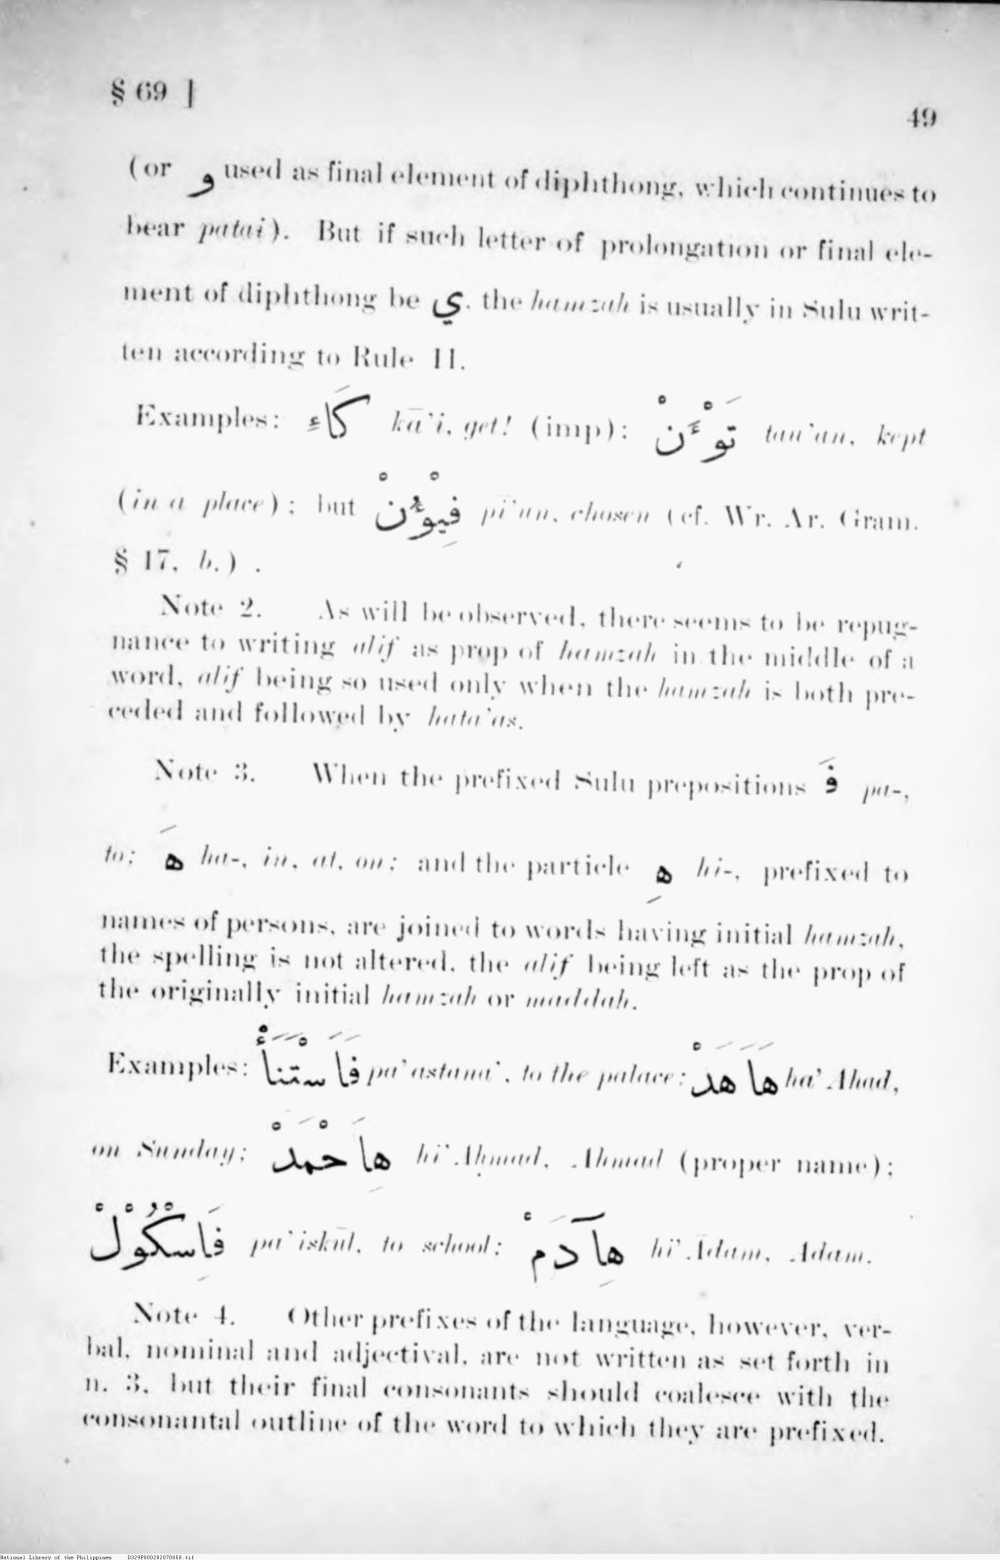 § 69 ]
49
(or و used as final element of diphthong, which continues to
bear patai). But if such letter of prolongation or final ele-
ment of diphthong be ي, the hamzah is usually in Sulu writ-
ten according to Rule II.
Examples: كَاءِ kā'i, get! (imp); تَوْءَنْ tau'an, kept
(in a place); but فِيْوٴَنْ pī'un, chosen (cf. Wr. Ar. Gram.
§ 17, b.) .
Note 2. As will be observed, there seems to be repug-
nance to writing alif as prop of hamzah in the middle of a
word, alif being so used only when the hamzah is both pre-
ceded and followed by hata'as.
Note 3. When the prefixed Sulu prepositions فَ pa-,
to; هَ ha-, in, at, on; and the particle هِ hi-, prefixed to
names of persons, are joined to words having initial hamzah,
the spelling is not altered, the alif being left as the prop of
the originally initial hamzah or maddah.
Examples: فَاَسْتَنَأْ pa'astana', to the palace; هَاَهَدْ ha'Ahad,
on Sunday; هِاَحْمَدْ hi'Aḥmad, Ahmad (proper name);
فَاِسْكُوْلْ pa'iskūl, to school; هِآدَمْ hi'Ādam, Adam.
Note 4. Other prefixes of the language, however, ver-
bal, nominal and adjectival, are not written as set forth in
n. 3, but their final consonants should coalesce with the
consonantal outline of the word to which they are prefixed.
National Library of the Philippines